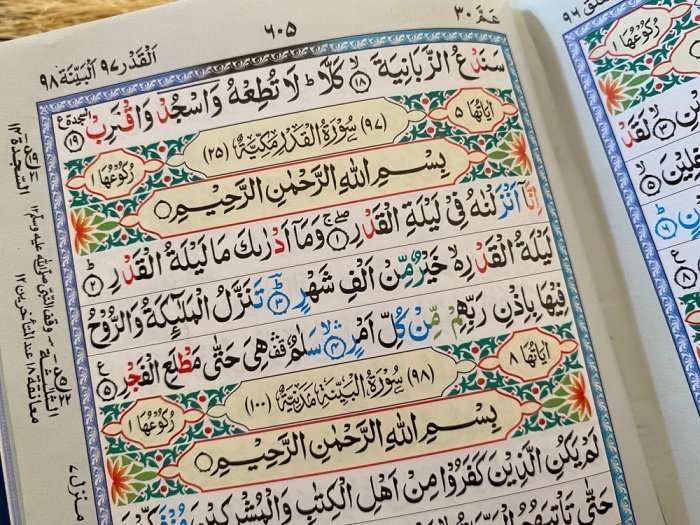 عَمَّ ٣٠
٦٠٥
اَلْقَدْر ٩٧ اَلْبَيِّنَة ٩٨
سَنَدْعُ الزَّبَانِيَةَ ۙ‏ ١٨ كَلَّا ؕ لَا تُطِعْهُ وَاسْجُدْ وَاقْتَرِبْ ١٩
اٰيَاتُهَا ٥
(٩٧) سُوْرَةُ الْقَدْرِ مَكِّيَّةٌ (٢٥)
رُكُوْعُهَا ١
بِسْمِ اللّٰهِ الرَّحْمٰنِ الرَّحِيْمِ
اِنَّاۤ اَنْزَلْنٰهُ فِىْ لَيْلَةِ الْقَدْرِ ١ وَمَاۤ اَدْرٰىكَ مَا لَيْلَةُ الْقَدْرِ ؕ ٢
لَيْلَةُ الْقَدْرِ ۙ خَيْرٌ مِّنْ اَلْفِ شَهْرٍ ؕ ٣ تَنَزَّلُ الْمَلٰٓئِكَةُ وَالرُّوْحُ
فِيْهَا بِاِذْنِ رَبِّهِمْ مِّنْ كُلِّ اَمْرٍ ٤ سَلٰمٌ هِىَ حَتّٰى مَطْلَعِ الْفَجْرِ ٥
اٰيَاتُهَا ٨
(٩٨) سُوْرَةُ الْبَيِّنَةِ مَدَنِيَّةٌ (١٠٠)
رُكُوْعُهَا ١
بِسْمِ اللّٰهِ الرَّحْمٰنِ الرَّحِيْمِ
لَمْ يَكُنِ الَّذِيْنَ كَفَرُوْا مِنْ اَهْلِ الْكِتٰبِ وَالْمُشْرِكِيْنَ مُنْفَكِّيْنَ
حَتّٰى تَاْتِيَهُمُ
السجدة ١٤
وقف النبي صلى الله عليه وسلم ١٢
معانقة ١٨ عند المتأخرين ١٢
منزل ٧
٩٦
رُكُوْعُهَا ١